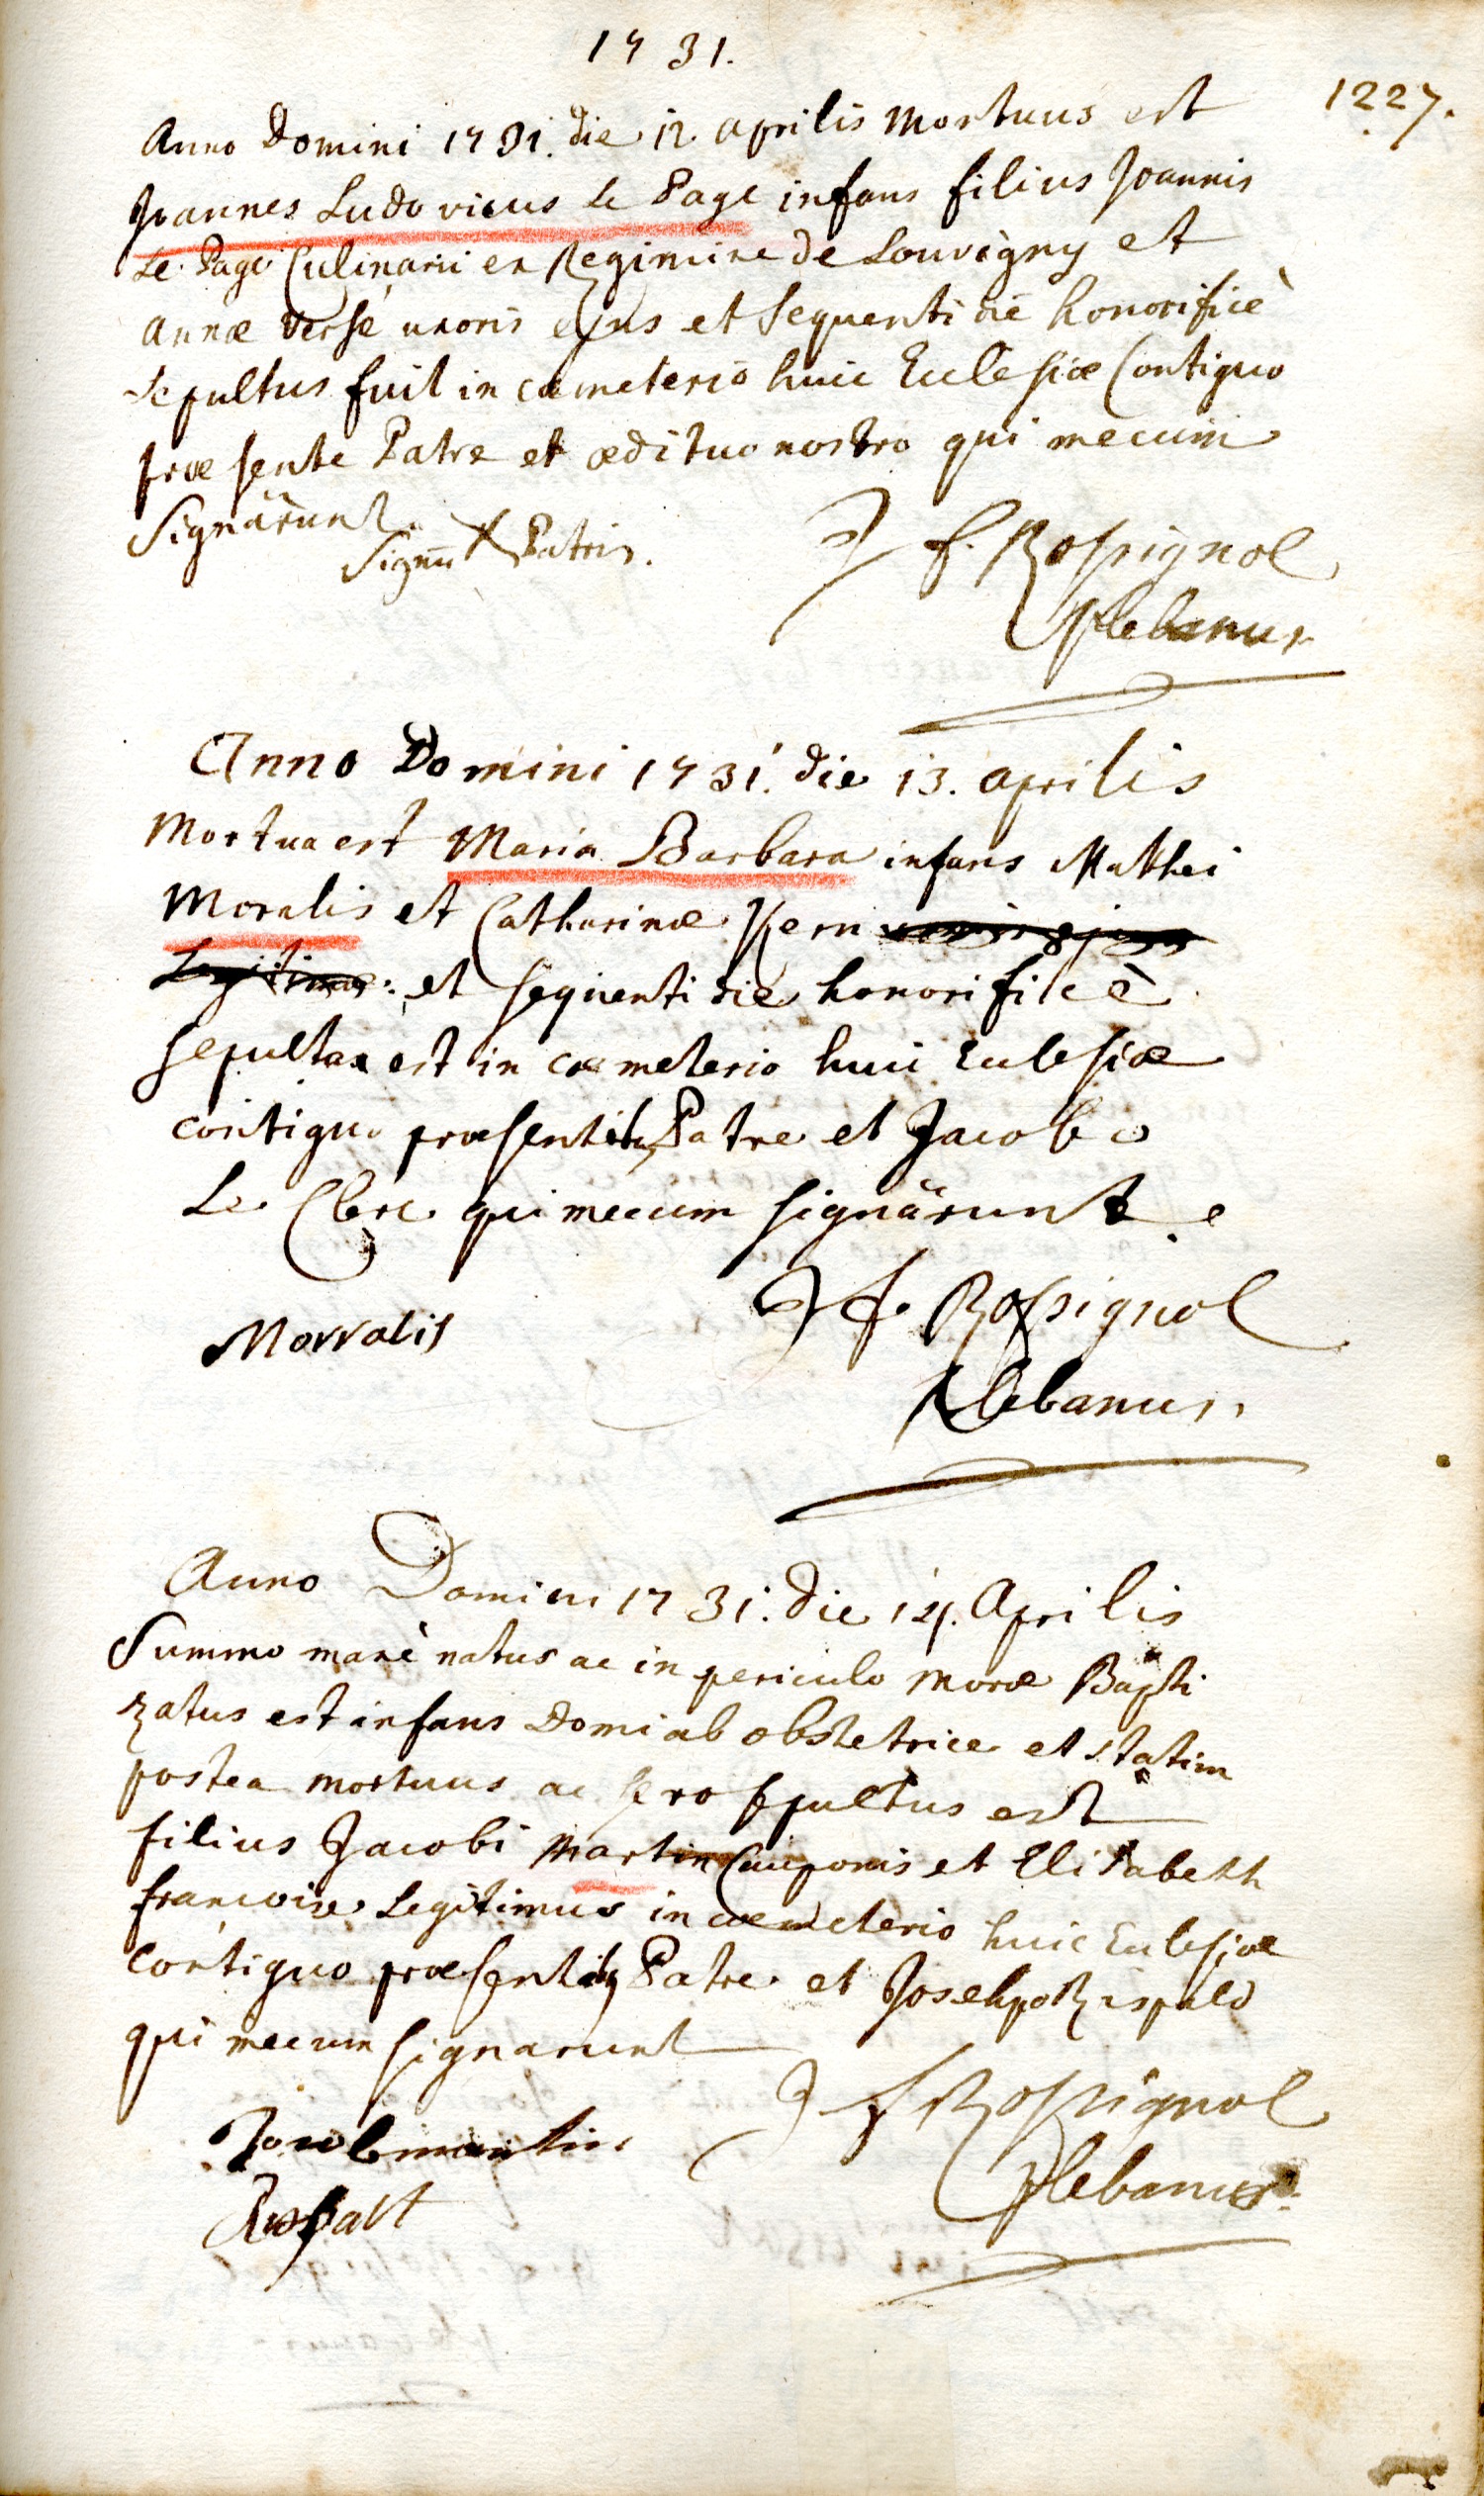 1731.
1227.
Anno Domini 1731. die 12 aprilis Mortuus est
Joannes Ludovicus le Page infans filius Joannis
Le Page Culinarii ex Regimine de Louvigny et
Annæ Versé uxoris ejus et sequenti die honorificè
sepultus fuit in cæmeterio huic Ecclesiæ Contiguo
præsente Patre et ædituo nostro qui mecum
Signârunt
Signũ X Patris.
J f. Rossignol
Plebanus
Anno Domini 1731. die 13. aprilis
Mortua est Maria Barbara infans Matthei
Moralis et Catharinæ Kern uxoris ejus
Legitima: et sequenti die honorificè
sepulta est in cæmeterio huic Ecclesiæ
contiguo præsentib9 Patre et Jacobo
Le Clerc qui mecum signârunt
Morralis
J f. Rossignol
Plebanus
Anno Domini 1731. die 14. Aprilis
Summo manè natus ac in periculo moræ Bapti
zatus est infans Domi ab obstetrice et statim
postea mortuus ac sero sepultus est
filius Jacobi Martin Cauponis et Elisabeth
francoise Legitimus in cæmeterio huic Ecclesiæ
contiguo præsentib9 Patre et Josepho
qui mecum signarunt
J f Rossignol
Jacob martin
Plebanus